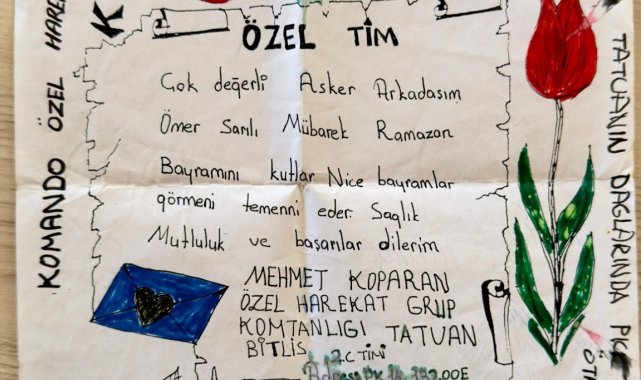 ÖZEL TİM
Çok değerli Asker Arkadaşım
Ömer Sarılı Mübarek Ramazan
Bayramını kutlar Nice bayramlar
görmeni temenni eder. Sağlık
Mutluluk ve başarılar dilerim
MEHMET KOPARAN
ÖZEL HAREKAT GRUP
KOMTANLIGI TATVAN
BİTLİS
2.C TİMİ
KOMANDO ÖZEL HARE
TATVANIN DAGLARINDA